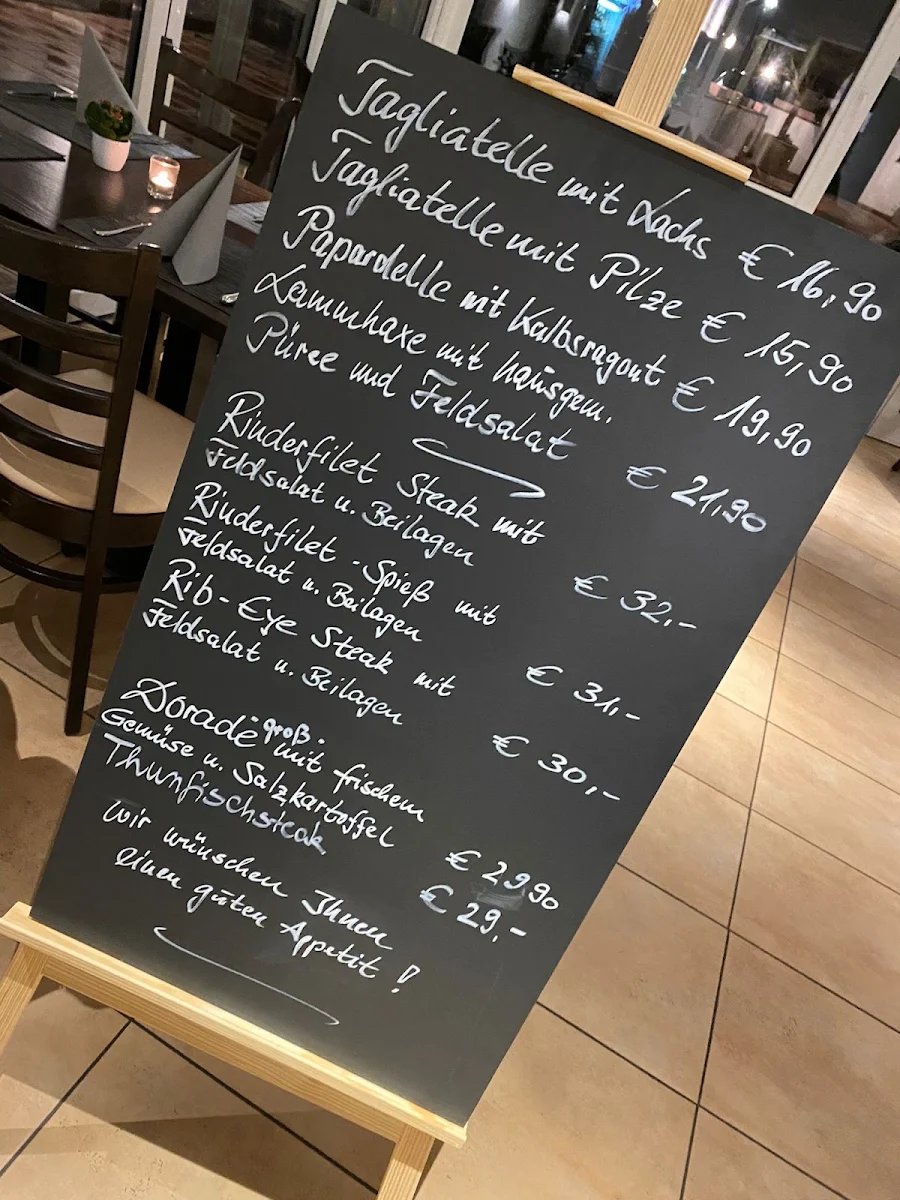 Tagliatelle mit Lachs € 16,90
Tagliatelle mit Pilze € 15,90
Papardelle mit Kalbsragout € 19,90
Lammhaxe mit hausgem.
Püree und Feldsalat € 21,90
Rinderfilet Steak mit
Feldsalat u. Beilagen € 32,-
Rinderfilet-Spieß mit
Feldsalat u. Beilagen € 31,-
Rib-Eye Steak mit
Feldsalat u. Beilagen € 30,-
Dorade groß. mit frischem
Gemüse u. Salzkartoffel € 29,90
Thunfischsteak € 29,-
Wir wünschen Ihnen
einen guten Appetit!